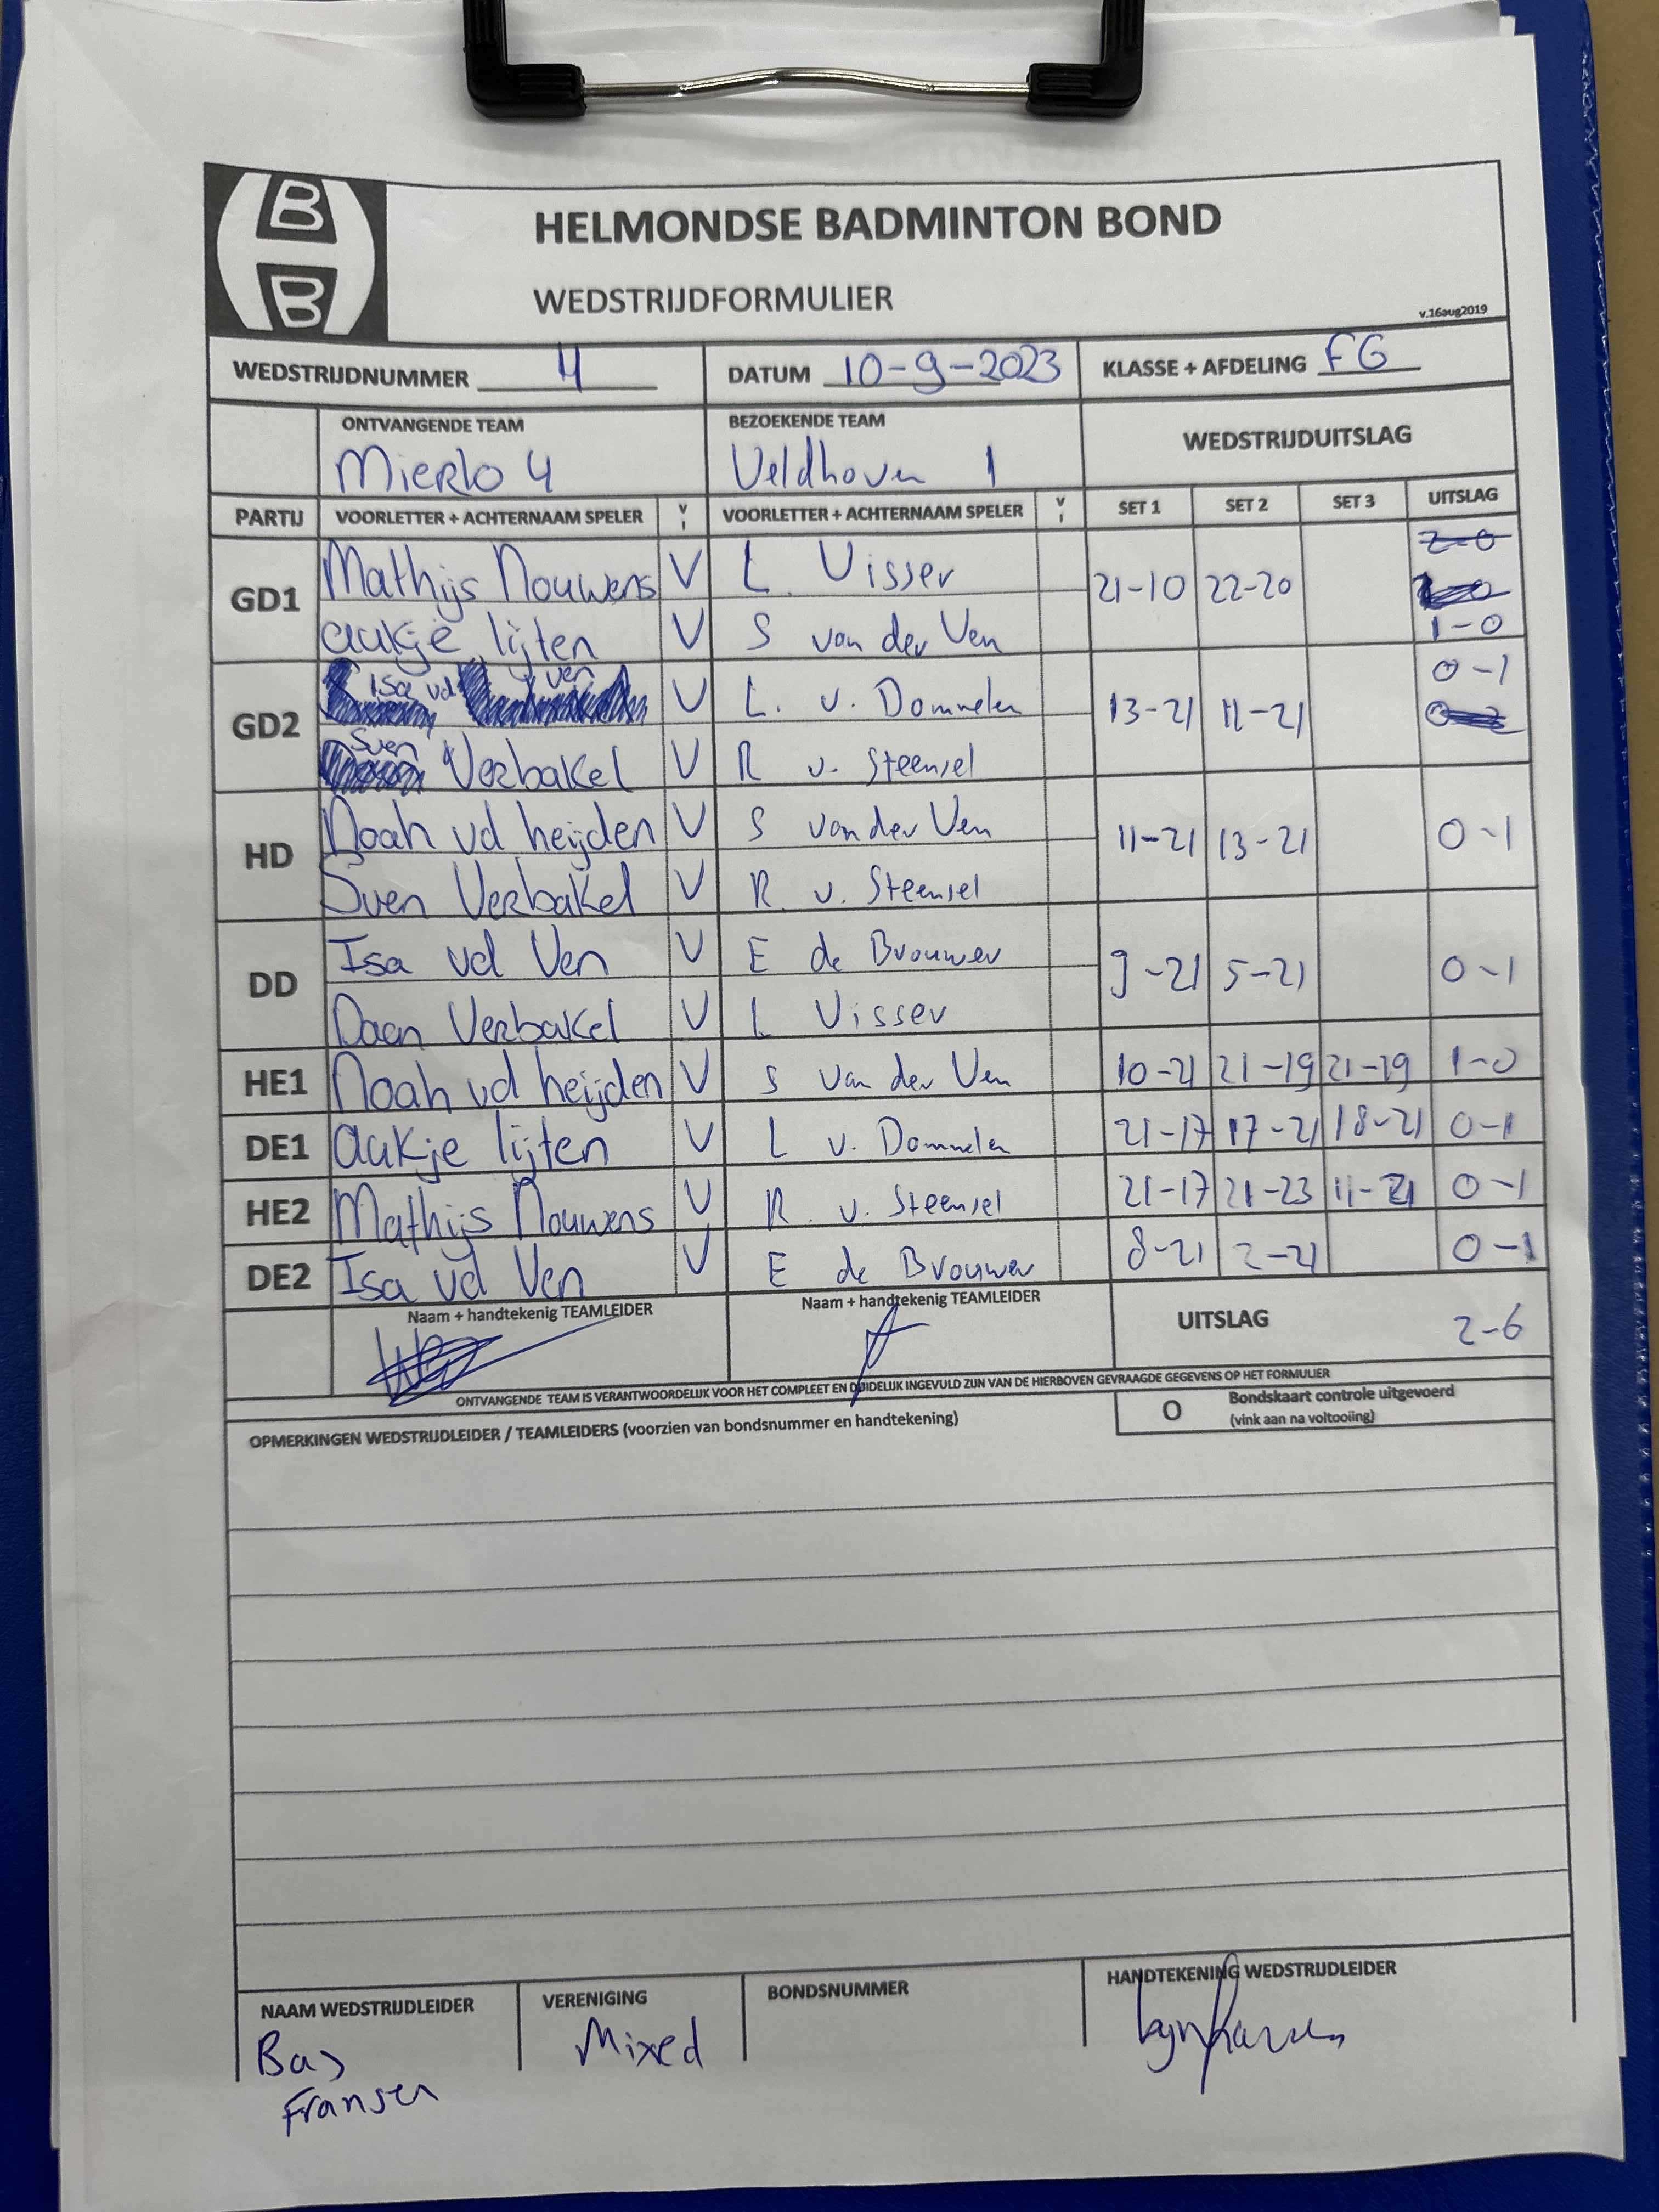 B
B
HELMONDSE BADMINTON BOND
WEDSTRIJDFORMULIER
v.16aug2019
WEDSTRIJDNUMMER 4 DATUM 10-9-2023 KLASSE + AFDELING FG
ONTVANGENDE TEAM BEZOEKENDE TEAM WEDSTRIJDUITSLAG
Mierlo 4 Veldhoven 1
PARTIJ VOORLETTER + ACHTERNAAM SPELER V I VOORLETTER + ACHTERNAAM SPELER V I SET 1 SET 2 SET 3 UITSLAG
2-0
GD1 Mathijs Nouwens V L. Visser 21-10 22-20
aukje lijten V S van der Ven 1-0
GD2 Isa vd Ven V L. v. Dommelen 13-21 11-21 0-1
Sven Verbakel V R v. Steensel
HD Noah vd heijden V S van der Ven 11-21 13-21 0-1
Sven Verbakel V R v. Steensel
DD Isa vd Ven V E de Brouwer 9-21 5-21 0-1
Daan Verbakel V L Visser
HE1 Noah vd heijden V S van der Ven 10-21 21-19 21-19 1-0
DE1 aukje lijten V L v. Dommelen 21-17 17-21 18-21 0-1
HE2 Mathijs Nouwens V R. v. Steensel 21-17 21-23 11-21 0-1
DE2 Isa vd Ven V E de Brouwer 8-21 2-21 0-1
Naam + handtekenig TEAMLEIDER Naam + handtekenig TEAMLEIDER UITSLAG 2-6
ONTVANGENDE TEAM IS VERANTWOORDELIJK VOOR HET COMPLEET EN DUIDELIJK INGEVULD ZIJN VAN DE HIERBOVEN GEVRAAGDE GEGEVENS OP HET FORMULIER
OPMERKINGEN WEDSTRIJDLEIDER / TEAMLEIDERS (voorzien van bondsnummer en handtekening)
O Bondskaart controle uitgevoerd
(vink aan na voltooiing)
NAAM WEDSTRIJDLEIDER VERENIGING BONDSNUMMER HANDTEKENING WEDSTRIJDLEIDER
Bas Mixed
Fransen